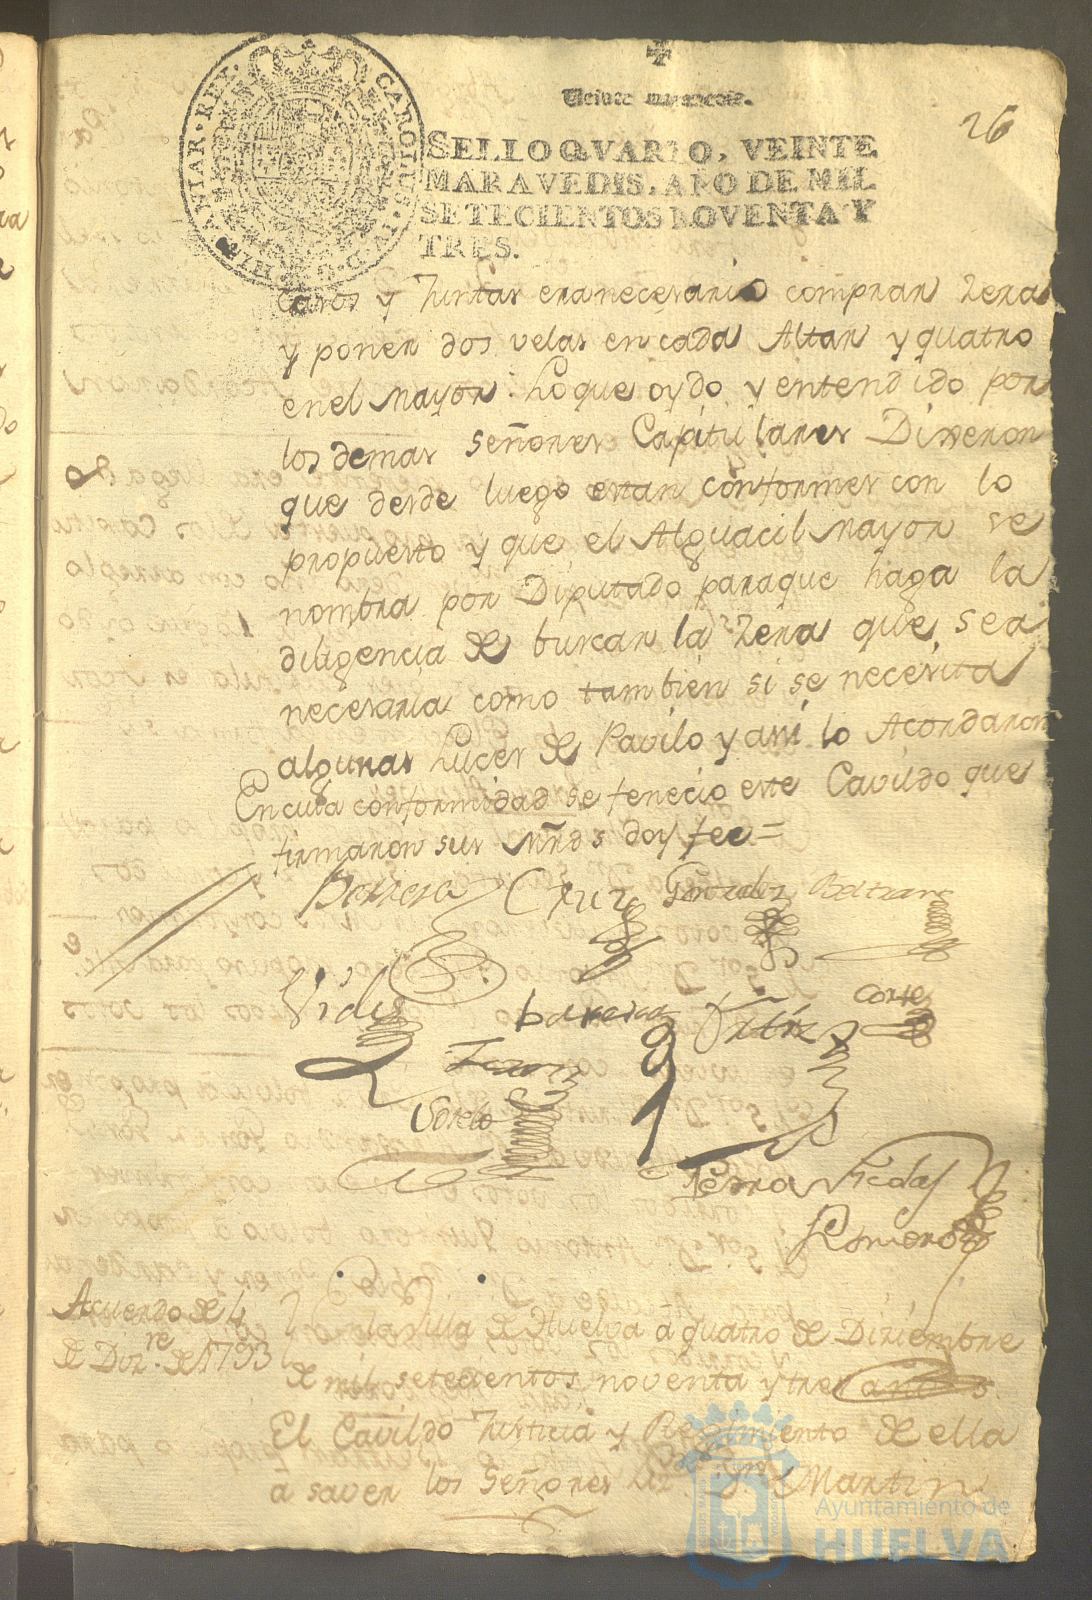 Veinte maravedis.
26
SELLO QVARTO, VEINTE
MARAVEDIS, AÑO DE MIL
SETECIENTOS NOVENTA Y
TRES.
CAROLUS
HISPANIAR. REX.
Caros y Juntas era necesario comprar Zera
y poner dos velas en cada Altar y quatro
en el mayor: Lo que oydo y entendido por
los demas Señores Capitulares Dixeron
que desde luego estan conformes con lo
propuesto y que el Alguacil mayor se
nombra por Diputado paraque haga la
diligencia de buscar la Zera que sea
necesaria como tambien si se necesita
algunas Luces de Pavilo y assi lo Acordaron
En cuia conformidad se fenecio este Cavildo que
firmaron sus mrds doy fee=
Borrero Cruz Gonzalez Beltran
Vides barrera Ortiz Cortes
Sotelo
Romero
Acuerdo de 4
de Dizre. de 1793
la villa de Huelva à quatro de Diziembre
de mil setecientos noventa y tres años
El Cavildo Justicia y Regimiento de ella
à saver los Señores Martin
Ayuntamiento de
HUELVA